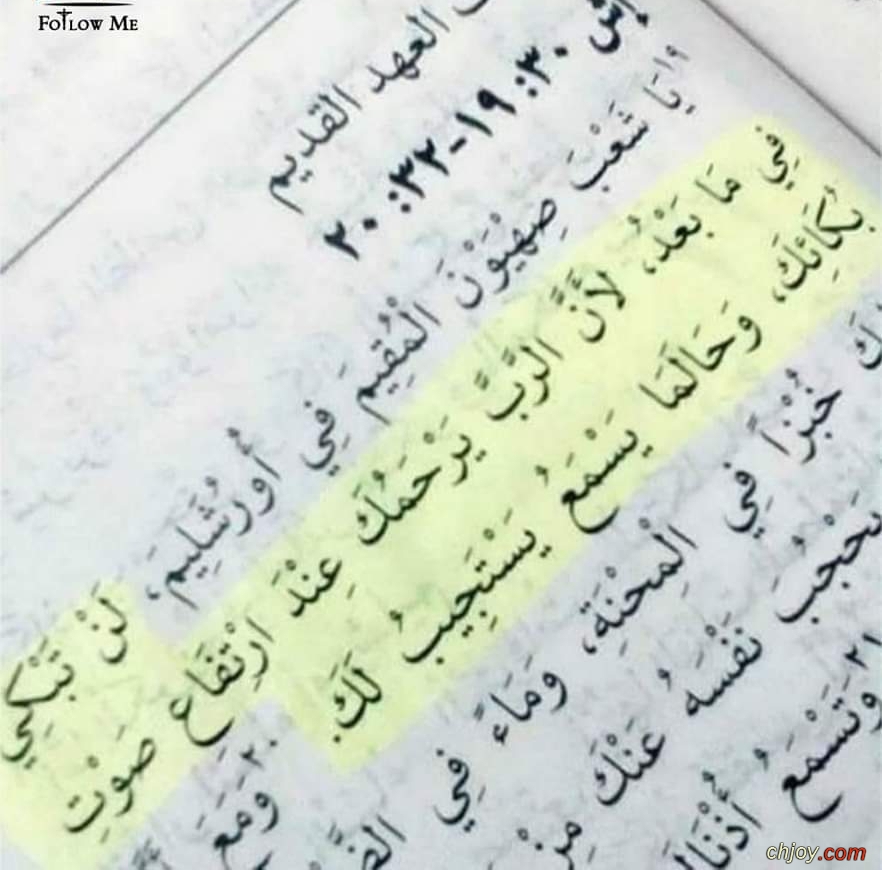 FOLLOW ME
العهد القديم
إش ٣٠: ١٩-٣٢: ٢٠
١٩ يَا شَعْبَ صِهْيَوْنَ الْمُقِيمَ فِي أُورُشَلِيمَ، لَنْ تَبْكِي
فِي مَا بَعْدُ، لأَنَّ الرَّبَّ يَرْحَمُكَ عِنْدَ ارْتِفَاعِ صَوْتِ
بُكَائِكَ، وَحَالَمَا يَسْمَعُ يَسْتَجِيبُ لَكَ. ٢٠ وَمَعَ
خُبْزاً فِي الْمِحْنَةِ، وَمَاءً فِي
يَحْجُبَ نَفْسَهُ عَنْكَ
٢١ وَتَسْمَعُ
chjoy.com